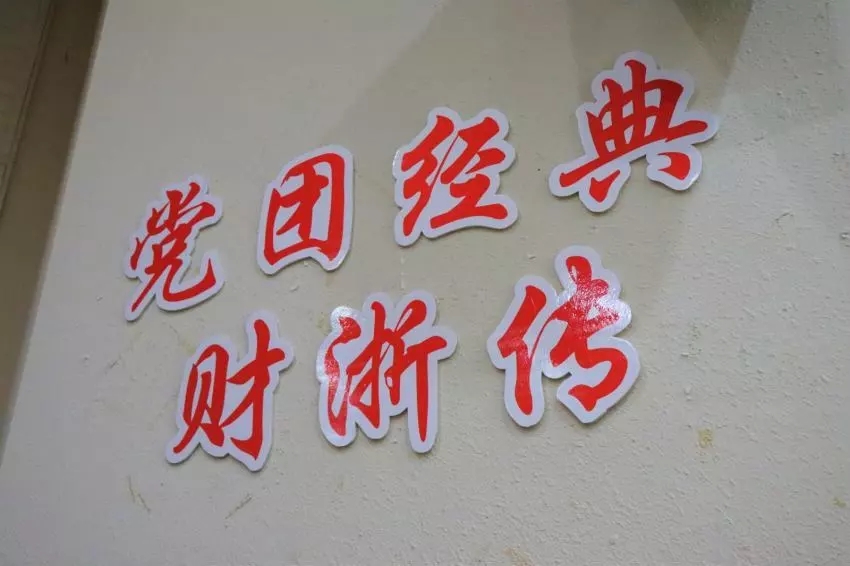 党团经典
财浙传